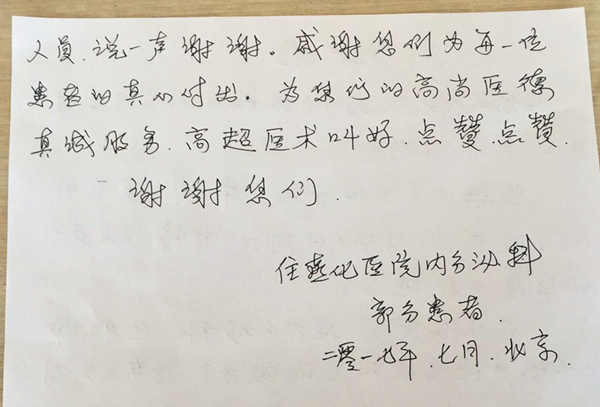 人员.说一声谢谢。感谢您们为每一位
患者的真心付出。为您们的高尚医德
真诚服务.高超医术叫好.点赞点赞.
谢谢您们.
住燕化医院内分泌科
部分患者.
二零一七年.七月.北京.